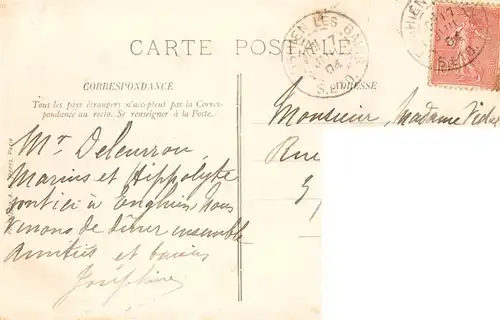 CARTE POSTALE
CORRESPONDANCE
Tous les pays étrangers n'acceptent pas la Corres-
pondance au recto. Se renseigner à la Poste.
Mr Deleurrou,
Marius et Hippolyte
sont ici à Enghien. Nous
venons de dîner ensemble
Amitiés et baisers
Joséphine
ADRESSE
Monsieur, Madame
Rue
ENGHIEN LES BAINS
17
JUIL
04
S. et O.
17
JUIL
04
S. et O.
10